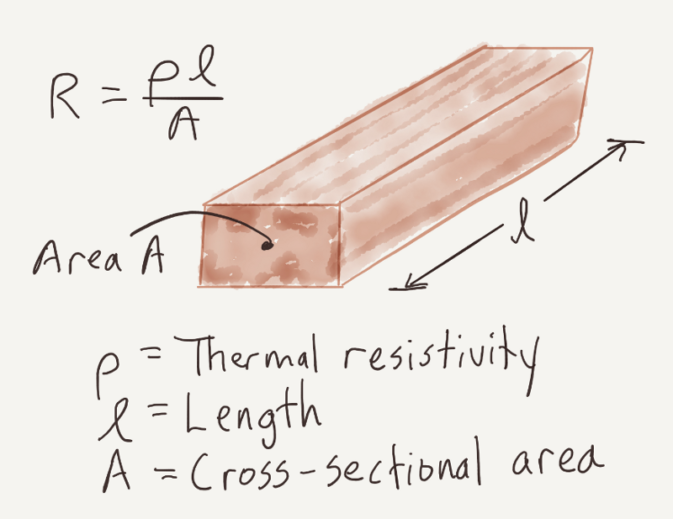 R = ρl/A
Area A
l
ρ = Thermal resistivity
l = Length
A = Cross-sectional area